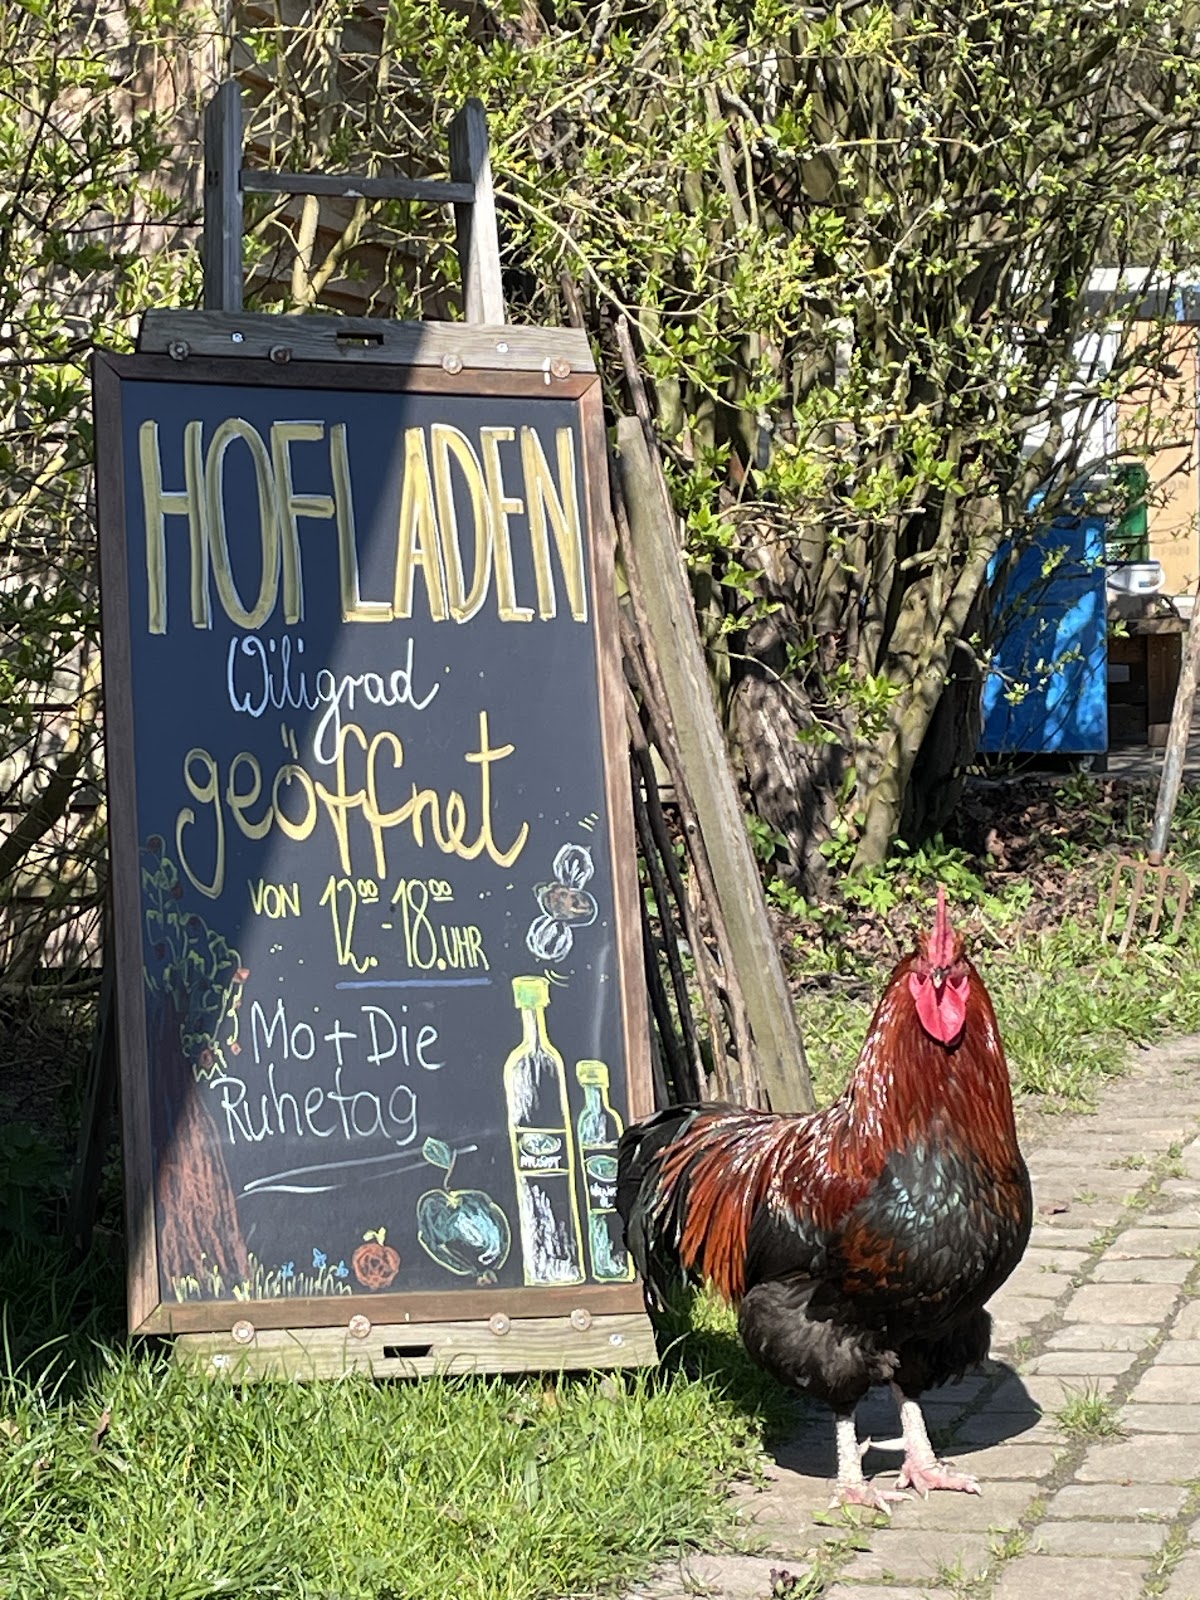 HOFLADEN
Wiligrad
geöffnet
VON 12.00 - 18.00 UHR
Mo + Die
Ruhetag
MOST